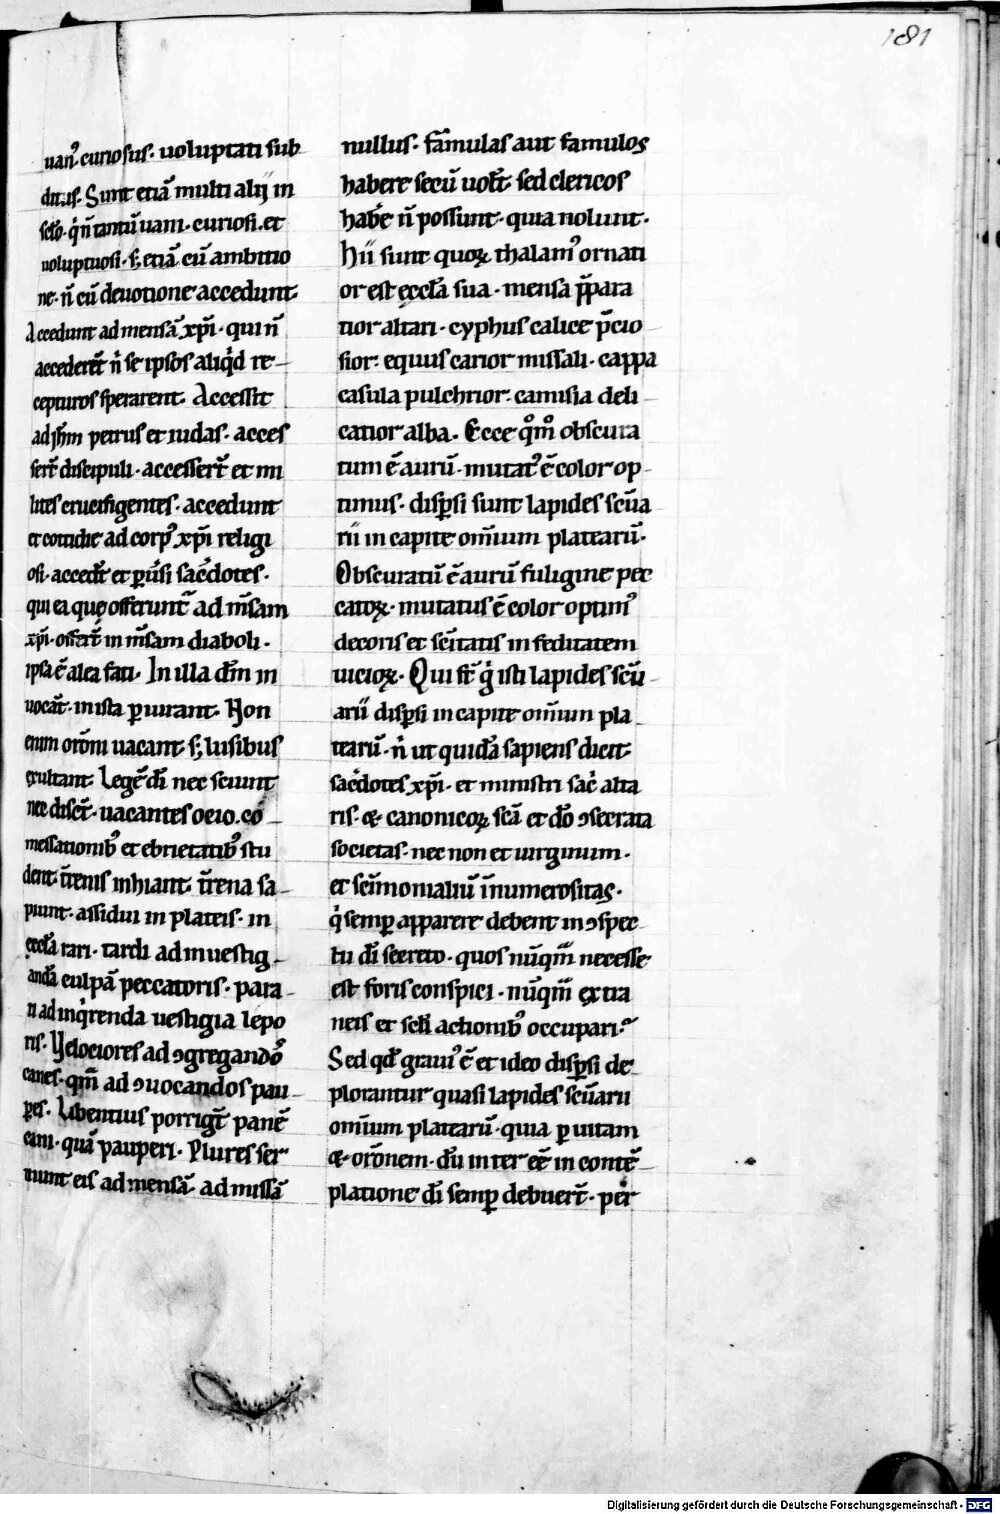 181
uanꝰ. curiosus. uoluptati sub
ditus. Sunt etiā multi alij in
sclo. q̇ n̄ tantū uani. curiosi. et
uoluptuosi. sꝫ etiā cū ambitio
ne. n̄ cū deuotione accedunt.
Accedunt ad mensā xp̄i. qui n̄
accederēt n̄ se ipsos aliqd re
cepturos sperarent. Accessit
ad ihm petrus et iudas. acces
sert̄ discipuli. accessert̄ et mi
lites crucifigentes. accedunt
et cottidie ad corpꝰ xp̄i religi
osi. accedt̄ et ꝑuersi sac̄dotes.
qui ea que offerunt̄ ad m̄sam
xp̄i. offert̄ in m̄sam diaboli.
ipsa ē alea fati. In illa dm̄ in
uocāt. in ista ꝑiurant. Non
enim orōni uacant sꝫ lusibus
exultant. Legē di nec sciunt
nec disct̄. uacantes ocio. cō
messationibꝰ et ebrietatibꝰ stu
dent. t̄renis inhiant. t̄rena sa
piunt. assidui in plateis. in
eccla rari. tardi ad inuestig
andā culpā peccatoris. para
ti ad inq̇renda uestigia lepo
ris. Velociores ad ꝯgregandoꝰ
canes. qm̄ ad ꝯuocandos pau
ꝑes. Libentius porrigt̄ panē
cani. quā pauperi. Plures ser
uiunt eis ad mensā. ad missā
nullus. famulas aut famulos
habere secū uolt̄. sed clericos
habe n̄ possunt. quia nolunt.
Hii sunt quoꝝ thalamꝰ ornati
or est eccla sua. mensa p̄para
tior altari. cyphus calice p̄cio
sior. equus carior missali. cappa
casula pulchrior. camisia deli
catior alba. Ecce qm̊ obscura
tum ē aurū. mutatꝰ ē color op
timus. disꝑsi sunt lapides scūa
rii in capite om̄ium platearū.
Obscuratū ē aurū fuligine pec
catoꝝ. mutatus ē color optimꝰ
decoris et scītatis in feditatem
uicioꝝ. Qui st̄ g̊ isti lapides scū
arii disꝑsi in capite om̄ium pla
tearū. n̄ ut quidā sapiens dicit.
sac̄dotes xp̄i. et ministri sac̄ alta
ris. & canonicoꝝ scā et dō ꝯsecrata
societas. nec non et uirginum.
et scīmonialiū īnumerositas.
q̇ semꝑ apparere debent in ꝯspec
tu di secreto. quos nūqm̄ necesse
est foris conspici. nūqm̄ extra
neis et scli actionibꝰ occupari.
Sed qd grauiꝰ ē et ideo disꝑsi de
plorantur quasi lapides scūarii
om̄ium platearū. quia ꝑ uitam
& orōnem. dū inter eē in contē
platione di semꝑ debuert̄. per
Digitalisierung gefördert durch die Deutsche Forschungsgemeinschaft - DFG